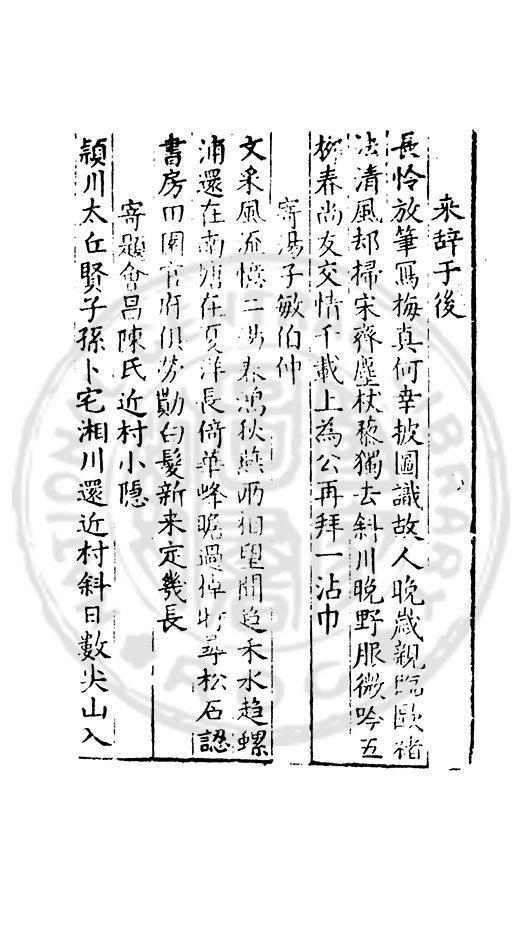 來辭于後
長怜放筆寫梅真何幸披圖識故人晚歲親臨歐褚
法清風却掃宋齊塵杖藜獨去斜川晚野服微吟五
柳春尚友交情千載上為公再拜一沾巾
寄湯子敏伯仲
文采風流憶二湯春鴻秋燕兩相望開邑禾水趋螺
浦還在南塘在夏洋長倚華峰瞻過倬尋松石認
書房田園官府俱勞勩白髮新來定幾長
寄題會昌陳氏近村小隱
潁川太丘賢子孫卜宅湘川還近村斜日數尖山入